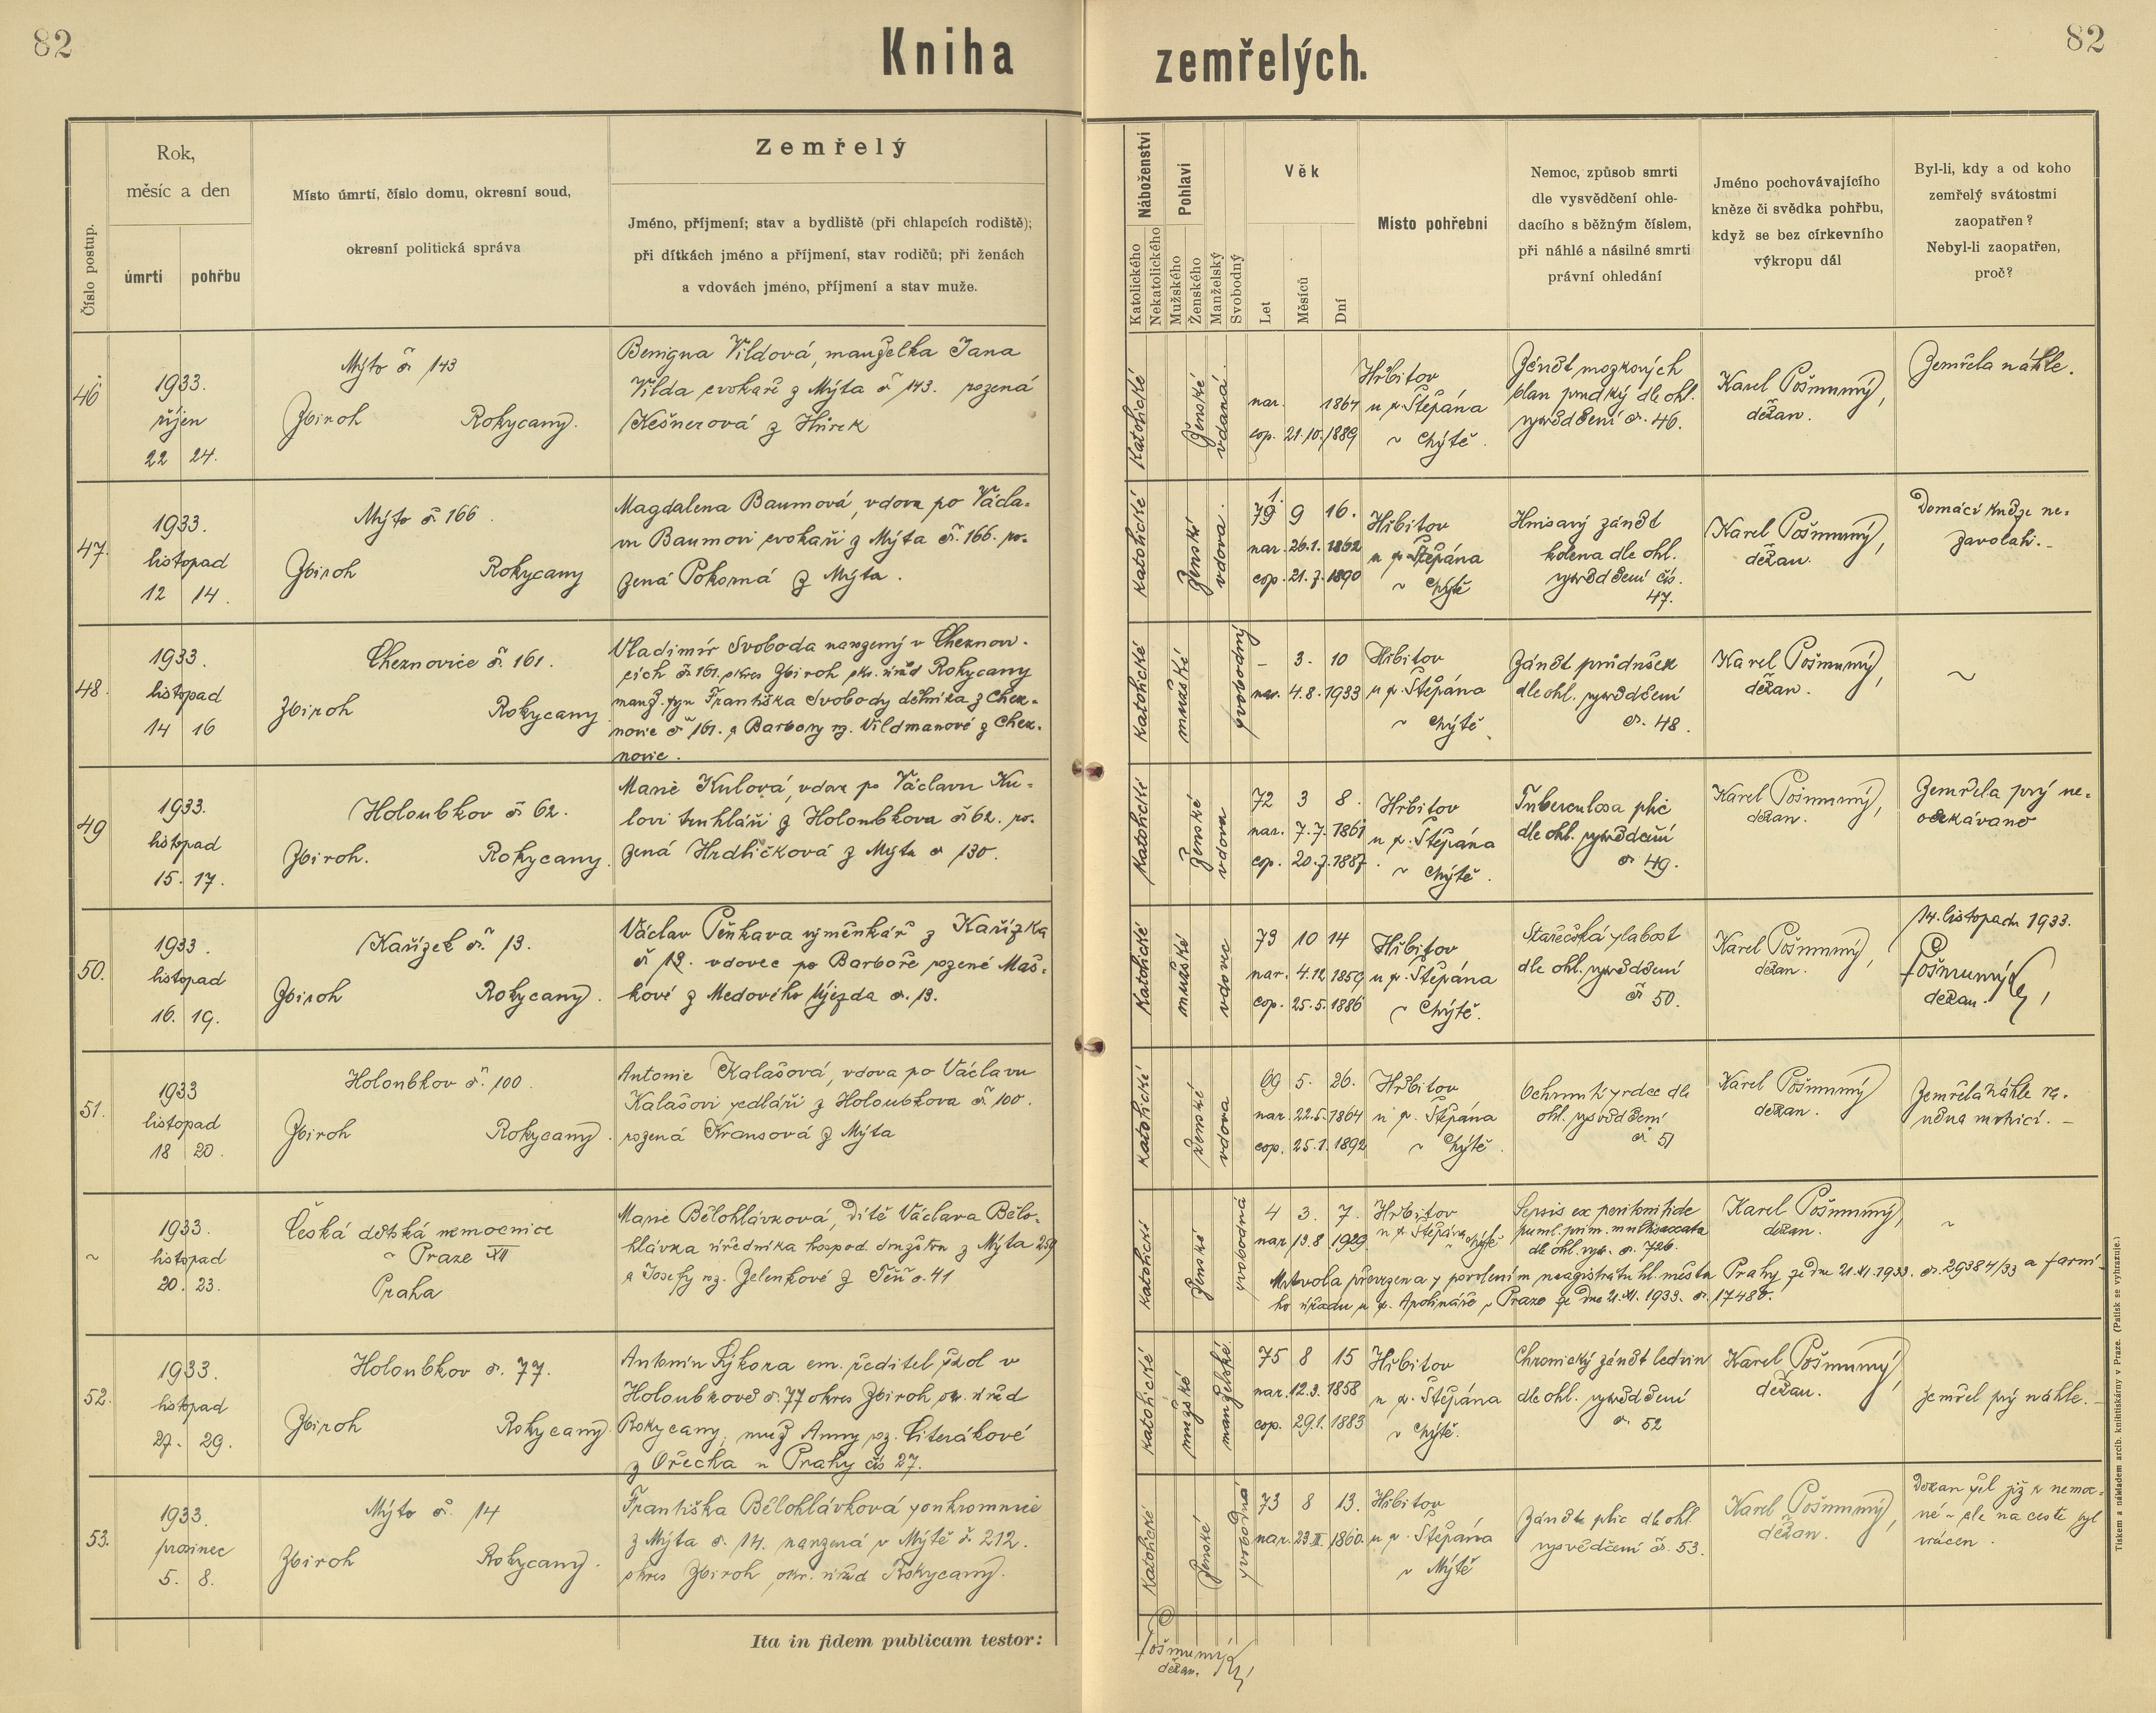 82
Kniha zemřelých.
82
Číslo postup.
Rok,
měsíc a den
úmrtí
pohřbu
Místo úmrtí, číslo domu, okresní soud,
okresní politická správa
Zemřelý
Jméno, příjmení; stav a bydliště (při chlapcích rodiště);
při dítkách jméno a příjmení, stav rodičů; při ženách
a vdovách jméno, příjmení a stav muže.
Náboženství
Katolického
Nekatolického
Pohlaví
Mužského
Ženského
Manželský
Svobodný
Věk
Let
Měsíců
Dní
Místo pohřební
Nemoc, způsob smrti
dle vysvědčení ohle-
dacího s běžným číslem,
při náhlé a násilné smrti
právní ohledání
Jméno pochovávajícího
kněze či svědka pohřbu,
když se bez církevního
výkropu dál
Byl-li, kdy a od koho
zemřelý svátostmi
zaopatřen?
Nebyl-li zaopatřen,
proč?
46
1933.
říjen
22 24.
Mýto č. 143
Zbiroh Rokycany.
Benigna Vildová, manželka Jana
Vilda cvokaře z Mýta č. 143. rozená
Kešnerová z Hůrek
Katolické
Ženské
vdaná.
nar. 1864
cop. 21.10.1889
Hřbitov
u sv. Štěpána
v Mýtě.
Zánět mozkových
blan prudký dle ohl.
vysvědčení č. 46.
Karel Pošmurný,
děkan.
Zemřela náhle.
47.
1933.
listopad
12 14.
Mýto č. 166.
Zbiroh Rokycany
Magdalena Baumová, vdova po Václa-
vu Baumovi cvokaři z Mýta č. 166. ro-
zená Pokorná z Mýta.
Katolické
Ženské
vdova.
9 16.
nar. 26.1. 1862
cop. 21.7. 1890
Hřbitov
u sv. Štěpána
v Mýtě
Hnisavý zánět
kolena dle ohl.
vysvědčení čís.
47.
Karel Pošmurný,
děkan.
Domácí kněze ne-
zavolali.-
48.
1933.
listopad
14 16
Cheznovice č. 161.
Zbiroh Rokycany
Vladimír Svoboda narozený v Cheznovi-
cích č. 161. okres Zbiroh okr. úřad Rokycany
manž. syn Františka Svobody dělníka z Chez-
novic č. 161. a Barbory roz. Vildmanové z Chez-
novic.
Katolické
mužské
svobodný
- 3. 10
nar. 4.8. 1933
Hřbitov
u sv. Štěpána
v Mýtě.
Zánět průdušek
dle ohl. vysvědčení
č. 48.
Karel Pošmurný,
děkan.
~
49
1933.
listopad
15. 17.
Holoubkov č. 62.
Zbiroh. Rokycany.
Marie Kulová, vdova po Václavu Ku-
lovi truhláři z Holoubkova č. 62. ro-
zená Hrdličková z Mýta č. 130.
Katolické
Ženské
vdova
72 3 8.
nar. 7.7. 1861
cop. 20.7. 1887.
Hřbitov
u sv. Štěpána
v Mýtě.
Tuberculosa plic
dle ohl. vysvědčení
č. 49.
Karel Pošmurný,
děkan.
Zemřela prý ne-
očekávaně
50.
1933.
listopad
16. 19.
Kařízek č. 13.
Zbiroh Rokycany.
Václav výměnkář z Kařízka
č. 13. vdovec po Barboře rozené Maš-
kové z Medového Újezda č. 13.
Katolické
mužské
vdovec
73 10 14
nar. 4.12. 1859
cop. 25.5. 1886
Hřbitov
u sv. Štěpána
v Mýtě.
Stařecká slabost
dle ohl. vysvědčení
č. 50.
Karel Pošmurný,
děkan.
14. listopadu 1933.
Pošmurný
děkan.
51.
1933
listopad
18 20.
Holoubkov č. 100.
Zbiroh Rokycany.
Antonie Kalašová, vdova po Václavu
Kalašovi sedláři z Holoubkova č. 100.
rozená Krausová z Mýta
Katolické
Ženské
vdova
69 5. 26.
nar. 22.5. 1864
cop. 25.1. 1892
Hřbitov
u sv. Štěpána
v Mýtě.
Ochrnutí srdce dle
ohl. vysvědčení
č. 51
Karel Pošmurný
děkan.
Zemřela náhle ra-
něna mrtvicí.-
~
1933.
listopad
20. 23.
Česká dětská nemocnice
v Praze XII
Praha
Marie Bělohlávková, dítě Václava Bělo-
hlávka úředníka hospod. družstva z Mýta 259
a Josefy roz. Zelenkové z Těň č. 41
Katolické
Ženské
svobodná
4 3. 7.
nar. 13.8 1929.
Hřbitov
u sv. Štěpána v Mýtě
Sepsis ex peritonitide
purul. prim. multisaccata
dle ohl. vys. č. 726.
Karel Pošmurný,
děkan.
~
Mrtvola převezena s povolením magistrátu hl. města Prahy ze dne 21.XI.1933. č. 29384/33 a farní-
ho úřadu u sv. Apolináře v Praze ze dne 21.XI. 1933. č. 17480.
52.
1933.
listopad
27. 29.
Holoubkov č. 77.
Zbiroh Rokycany.
Antonín Sýkora em. ředitel škol v
Holoubkově č. 77 okres Zbiroh okr. úřad
Rokycany, muž Anny roz. Literákové
z Ořecha u Prahy čís 27.
Katolické
mužské
manželské.
75 8 15
nar. 12.3. 1858
cop. 29.1. 1883
Hřbitov
u sv. Štěpána
v Mýtě.
Chronický zánět ledvin
dle ohl. vysvědčení
č. 52
Karel Pošmurný,
děkan.
Zemřel prý náhle.-
53.
1933.
prosinec
5. 8.
Mýto č. 14
Zbiroh Rokycany.
Františka Bělohlávková soukromnice
z Mýta č. 14. narozená v Mýtě č. 212.
okres Zbiroh, okr. úřad Rokycany.
Katolické
Ženské
svobodná
73 8 13.
nar. 23.III. 1860.
Hřbitov
u sv. Štěpána
v Mýtě
Zánět plic dle ohl.
vysvědčení č. 53.
Karel Pošmurný,
děkan.
Děkan šel již k nemoc-
né - ale na cestě byl
vrácen.
Ita in fidem publicam testor:
Pošmurný
děkan.
Tiskem a nákladem arcib. knihtiskárny v Praze. (Patisk se vyhrazuje.)